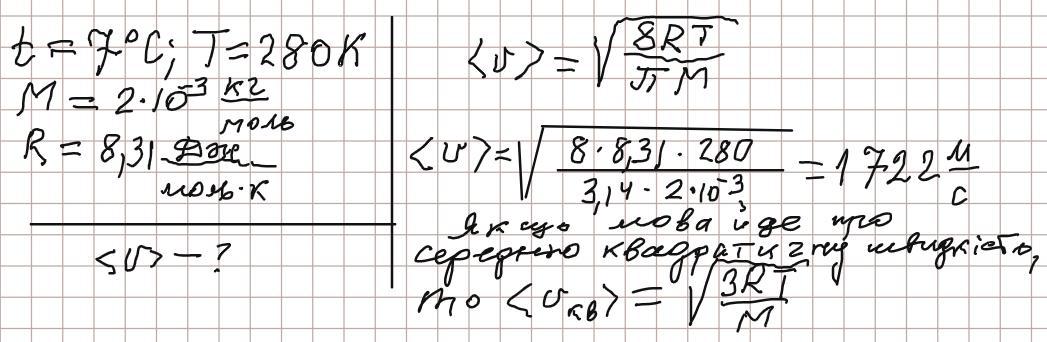 t = 7°C; T = 280K
M = 2·10⁻³ кг/моль
R = 8,31 Дж/моль·К
<v> — ?
<v> = √(8RT/πM)
<v> = √(8·8,31·280/3,14·2·10⁻³) = 1722 м/с
Якщо мова йде про
середню квадратичну швидкість,
то <v кв> = √(3RT/M)